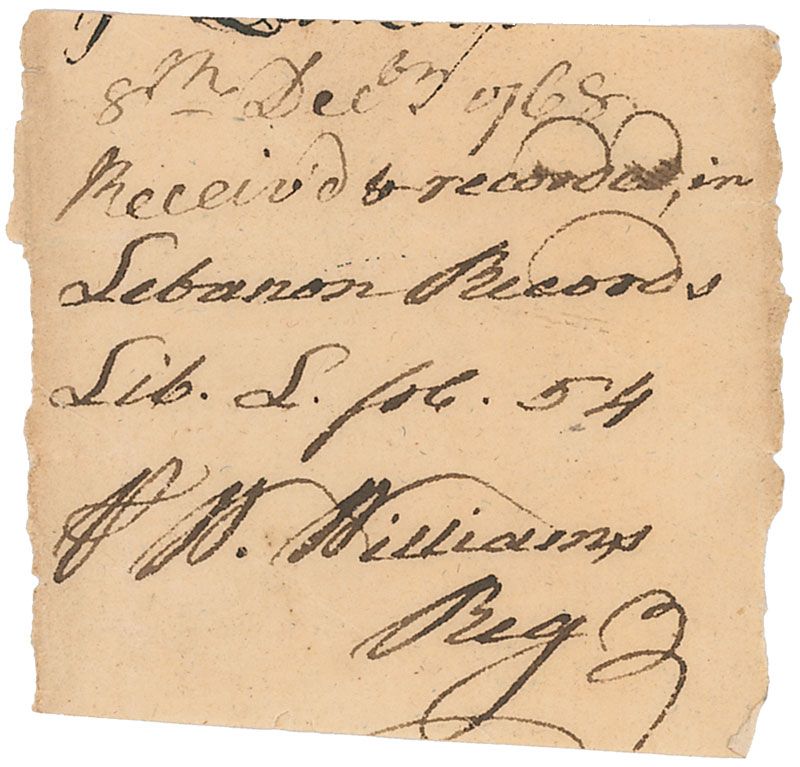 8th Decbr 1768
Receiv'd & recorded, in
Lebanon Records
Lib. L. fol. 54
W. Williams
Reg